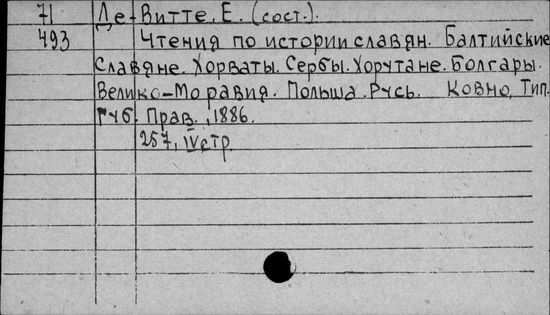 71 Де-Витте, Е. (сост.).
493 Чтения по истории славян. Балтийские
Славяне. Хорваты. Сербы. Хорутане. Болгары.
Велико-Моравия. Польша. Русь. Ковно, Тип.
Губ. Прав., 1886.
257, IV стр.